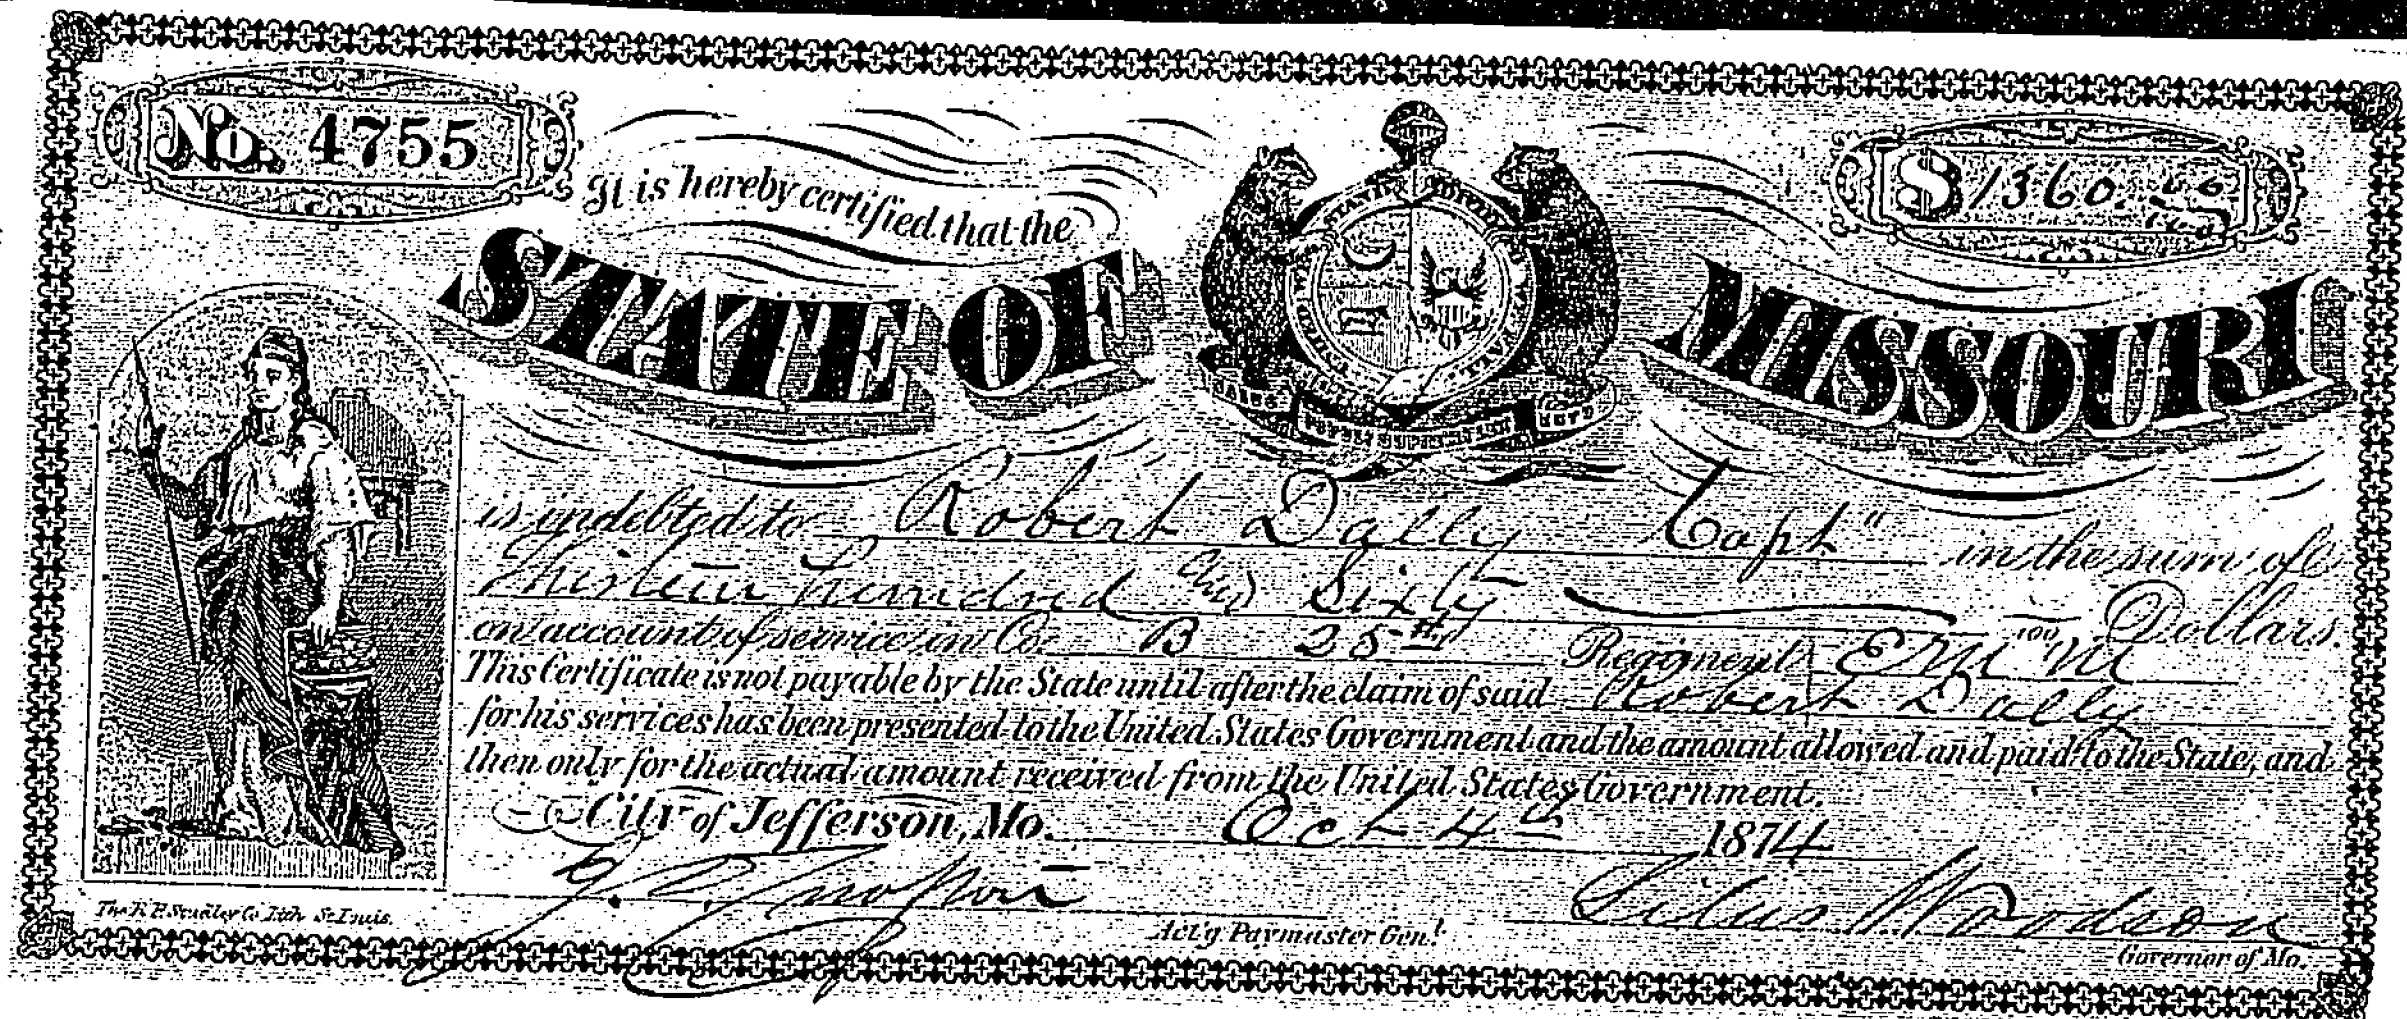 No. 4755
$ 1360.
It is hereby certified that the
STATE OF MISSOURI
is indebted to Robert Dally Capt" in the sum of
Thirteen hundred and Sixty /100 Dollars.
on account of service in Co. B 25th Regiment E M M
This Certificate is not payable by the State until after the claim of said Robert Dally
for his services has been presented to the United States Government and the amount allowed and paid to the State, and
then only for the actual amount received from the United States Government.
City of Jefferson, Mo. Oct 4th 1874
Silas Woodson
The R.P. Studley Co. Lith. St. Louis.
Act'g Paymaster Gen!
Governor of Mo.